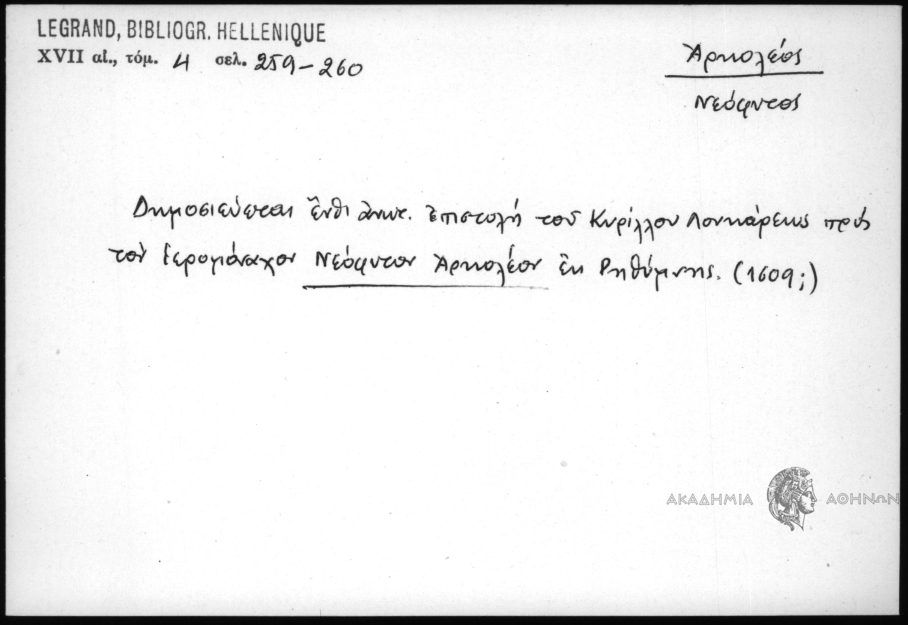 LEGRAND, BIBLIOGR. HELLENIQUE
XVII αἰ., τόμ. 4 σελ. 259-260
Ἀρκολέος
Νεόφυτος
Δημοσιεύεται ἔνθ' ἀνωτ. ἐπιστολή τοῦ Κυρίλλου Λουκάρεως πρός
τόν ἱερομόναχον Νεόφυτον Ἀρκολέον ἐκ Ρηθύμνης. (1609;)
ΑΚΑΔΗΜΙΑ ΑΘΗΝΩΝ